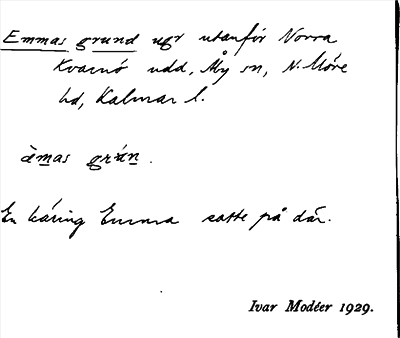 Emmas grund ugr utanför Norra
Kvarnö udd, Åby sn, N. Möre
hd, Kalmar l.
àmas grán.
En käring Emma satte på där.
Ivar Modéer 1929.